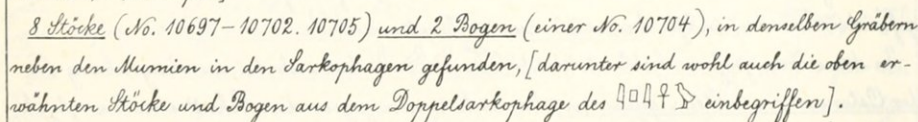 8 Stöcke (No. 10697–10702. 10705) und 2 Bogen (einer No. 10704), in denselben Gräbern
neben den Mumien in den Sarkophagen gefunden, [darunter sind wohl auch die oben er-
wähnten Stöcke und Bogen aus dem Doppelsarkophage des 𓇋𓊪𓇋𓋹 einbegriffen].